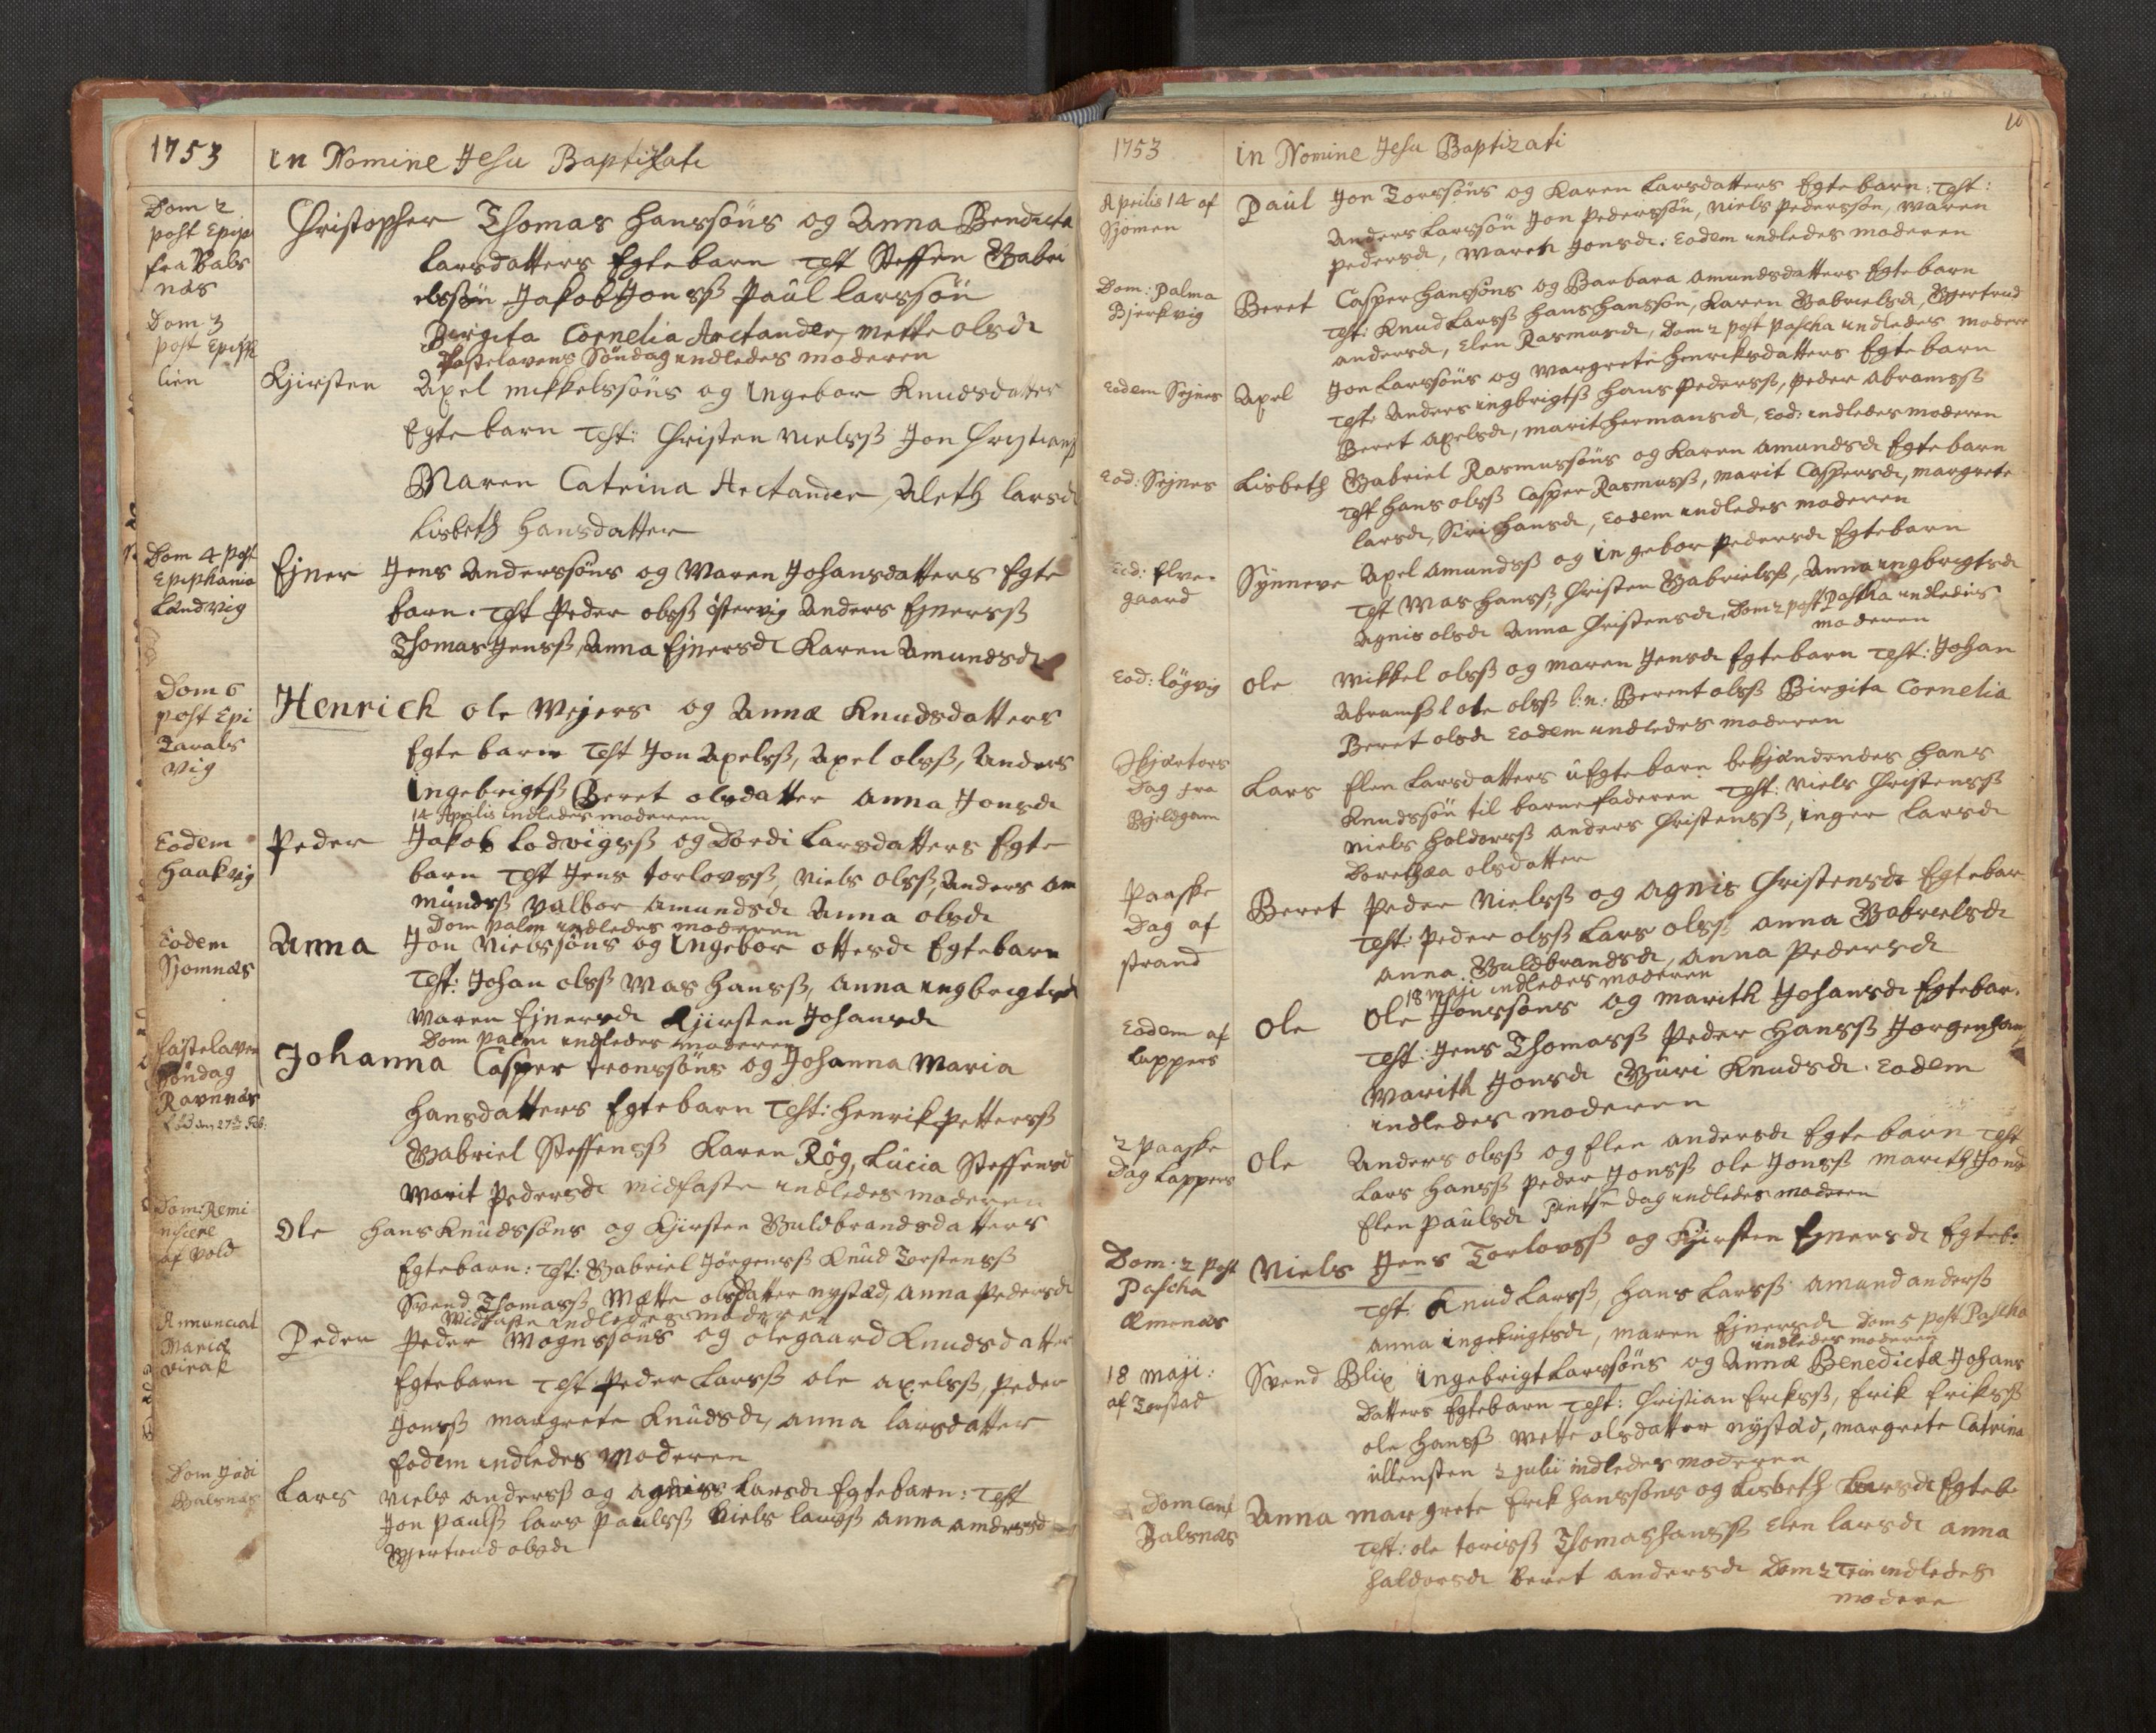 1753
in Nomine Jesu Baptizati
Dom 2
post Epip
fra Bals
næs
Christopher Thomas Hanssøns og Anna Bendicta
Larsdatters Egtebarn Test Steffen Gabri
elssøn Jakob Jonsß Paul Larssøn
Birgita Cornelia Arctander, Mette olsdr
Fastelavens Søndag indledes moderen
Dom 3
post Epiph
lien
Kjirsten Axel Mikkelssøns og Ingebor Knudsdatters
Egtebarn Test: Christen Nielsß Jon Christiansß
Maren Catrina Arctander, Aleth larsdr
Lisbeth Hansdatter
Dom 4 post
Epiphania
Landvig
Ejner Jens Anderssøns og Maren Johansdatters Egte
barn. Test Peder olsß östervig Anders Ejnersß
Thomas Jensß, Anna Ejnersdr Karen Amundsdr
Dom 6
post Epi
Tarals
vig
Henrich ole Mejers og Annæ Knudsdatters
Egtebarn Test Jon Axelsß, Axel olsß, Anders
Ingebrigtsß Beret olsdatter Anna Jonsdr
14 Aprilis indledes moderen
Eodem
Haakvig
Peder Jakob Lodvigsß og Dordi Larsdatters Egte
barn Test Jens torlovsß, Niels Olsß, Anders Am
undsß Valbor Amundsdr Anna olsdr
Dom palm indledes moderen
Eodem
Sjomnæs
Anna Jon Nielssøns og Ingebor ottersdr Egtebarn
Test: Johan olsß Mas Hansß, Anna ingbrigtsdr
Maren Ejnersdr Kjirsten Johansdr
Dom palm indledes moderen
Fastelavens
Søndag
Ravnnæs
Johanna Casper tronssøns og Johanna Maria
Hansdatters Egtebarn Test: Henrik Pettersß
Gabriel Steffensß Karen Røg, Lucia Steffensd
Marit Pedersdr midfaste indledes moderen
Dom: Remi
niscere
af Vold
Ole Hans Knudssøns og Kjirsten Guldbrandsdatters
Egtebarn: Test: Gabriel Jörgensß Knud Torstensß
Svend Thomasß Mætte olsdatter nystad, Anna Pedersdr
Midfaste indledes moderen
Annunciat
Mariæ
Virak
Peder Peder Mognssøns og Olegaard Knudsdatter
Egtebarn Test Peder Larsß ole axelsß, Peder
Jonsß Margrete Knudsdr, Anna larsdatter
Eodem indledes Moderen
Dom Judi
Balsnæs
Lars Niels andersß og Agnis Larsdr Egtebarn: Test
Jon Paulsß Lars Paulsß Niels larsß Anna andersd
Gjertrud olsdr
1753
in Nomine Jesu Baptizati
10
Aprilis 14 af
Sjomen
Paul Jon Torssøns og Karen Larsdatters Egtebarn: Test:
Anders Larssøn Jon Pederssøn, Niels Pederssøn, Maren
Pedersdr, Maren Jonsdr. Eodem indledes moderen
Dom: Palma
Bjerkvig
Beret Casper Hanssøns og Barbara Amundsdatters Egtebarn
Test: Knud Larsß Hans Hanssøn, Karen Gabrielsd, Gjertrud
andersdr, Elen Rasmusdr, Dom 2 post pascha indledes modere
Eodem Sejnes
Axel Jon Larssøns og Margrete Henriksdatters Egtebarn
Test: Anders ingbrigtsß Hans Pedersß, Peder Abramsß
Beret Axelsdr, marit Hermansdr, Eod: indledes moderen
Eod: Sejnes
Lisbeth Gabriel Rasmussøns og Karen Amundsdr Egtebarn
Test Hans olsß Casper Rasmusß, Marit Caspersdr, Margrete
larsdr, Siri Hansdr, Eodem indledes moderen
Eod: Elve-
gaard
Synneve Axel Amundsß og Ingebor Pedersdr Egtebarn
Test Mas Hansß, Christen Gabrielsß, Anna ingbrigtsdr
Agnis olsdr Anna Christensdr, Dom 2 post Pascha indledes
moderen
Eod: løgvig
Ole Mikkel olsß og Maren Jensdr Egtebarn Test: Johan
Abramsß ole olsß l:n: Berent olsß Birgita Cornelia
Beret olsdr Eodem indledes moderen
Skjærtors
Dag fra
Bjeldgam
Lars Elen Larsdatters uEgtebarn bekjændendes Hans
Knudssøn til barnefaderen Test: Niels Christensß
Niels Haldorsß Anders Christensß, Inger Larsdr
Dorethæa olsdatter
Paaske
Dag af
Strand
Beret Peder Nielsß og Agnis Christensdr Egtebar
Test: Peder olsß Lars olsß Anna Gabrielsdr
Anna Guldbrandsdr, Anna Pedersdr
18 Maji indledes moderen
Eodem af
Lappers
Ole Ole Jonssøns og Marith Johansdr Egtebar.
Test: Jens Thomasß Peder Hansß Jørgen Hansß
Marith Jonsdr Guri Knudsdr. Eodem
indledes moderen
2 Paaske
Dag Lappers
Ole Anders olsß og Elen Andersdr Egtebarn Test
Lars Hansß Peder Jonsß Ole Jonsß Marith Jonsd
Elen Paulsdr Pintse dag indledes moderen
Dom: 2 Post
Pascha
Æmenæs
Niels Jens Torlovsß og Kjirsten Ejnersdr Egteb:
Test: Knud Larsß, Hans Larsß Amund andersß
Anna Ingebrigtsdr, Maren Ejnersdr Dom 5 post Pascha
indledes moderen
18 Maji:
af Torstad
Svend Blix Ingebrigt Larssøns og Annæ Benedictæ Johans
Datters Egtebarn Test: Christian Eriksß, Erik Eriksß
Ole Hansß Mette olsdatter nystad, Margrete Catrina
Ullensten 2 Julii indledes moderen
Dom Cant
Balsnæs
Anna Margrete Erik Hanssøns og Lisbeth Larsdr Egteb
Test: ole torisß Thomas Hansß Elen Larsdr Anna
Haldorsdr Beret andersdr Dom 2 Trin indledes
modere